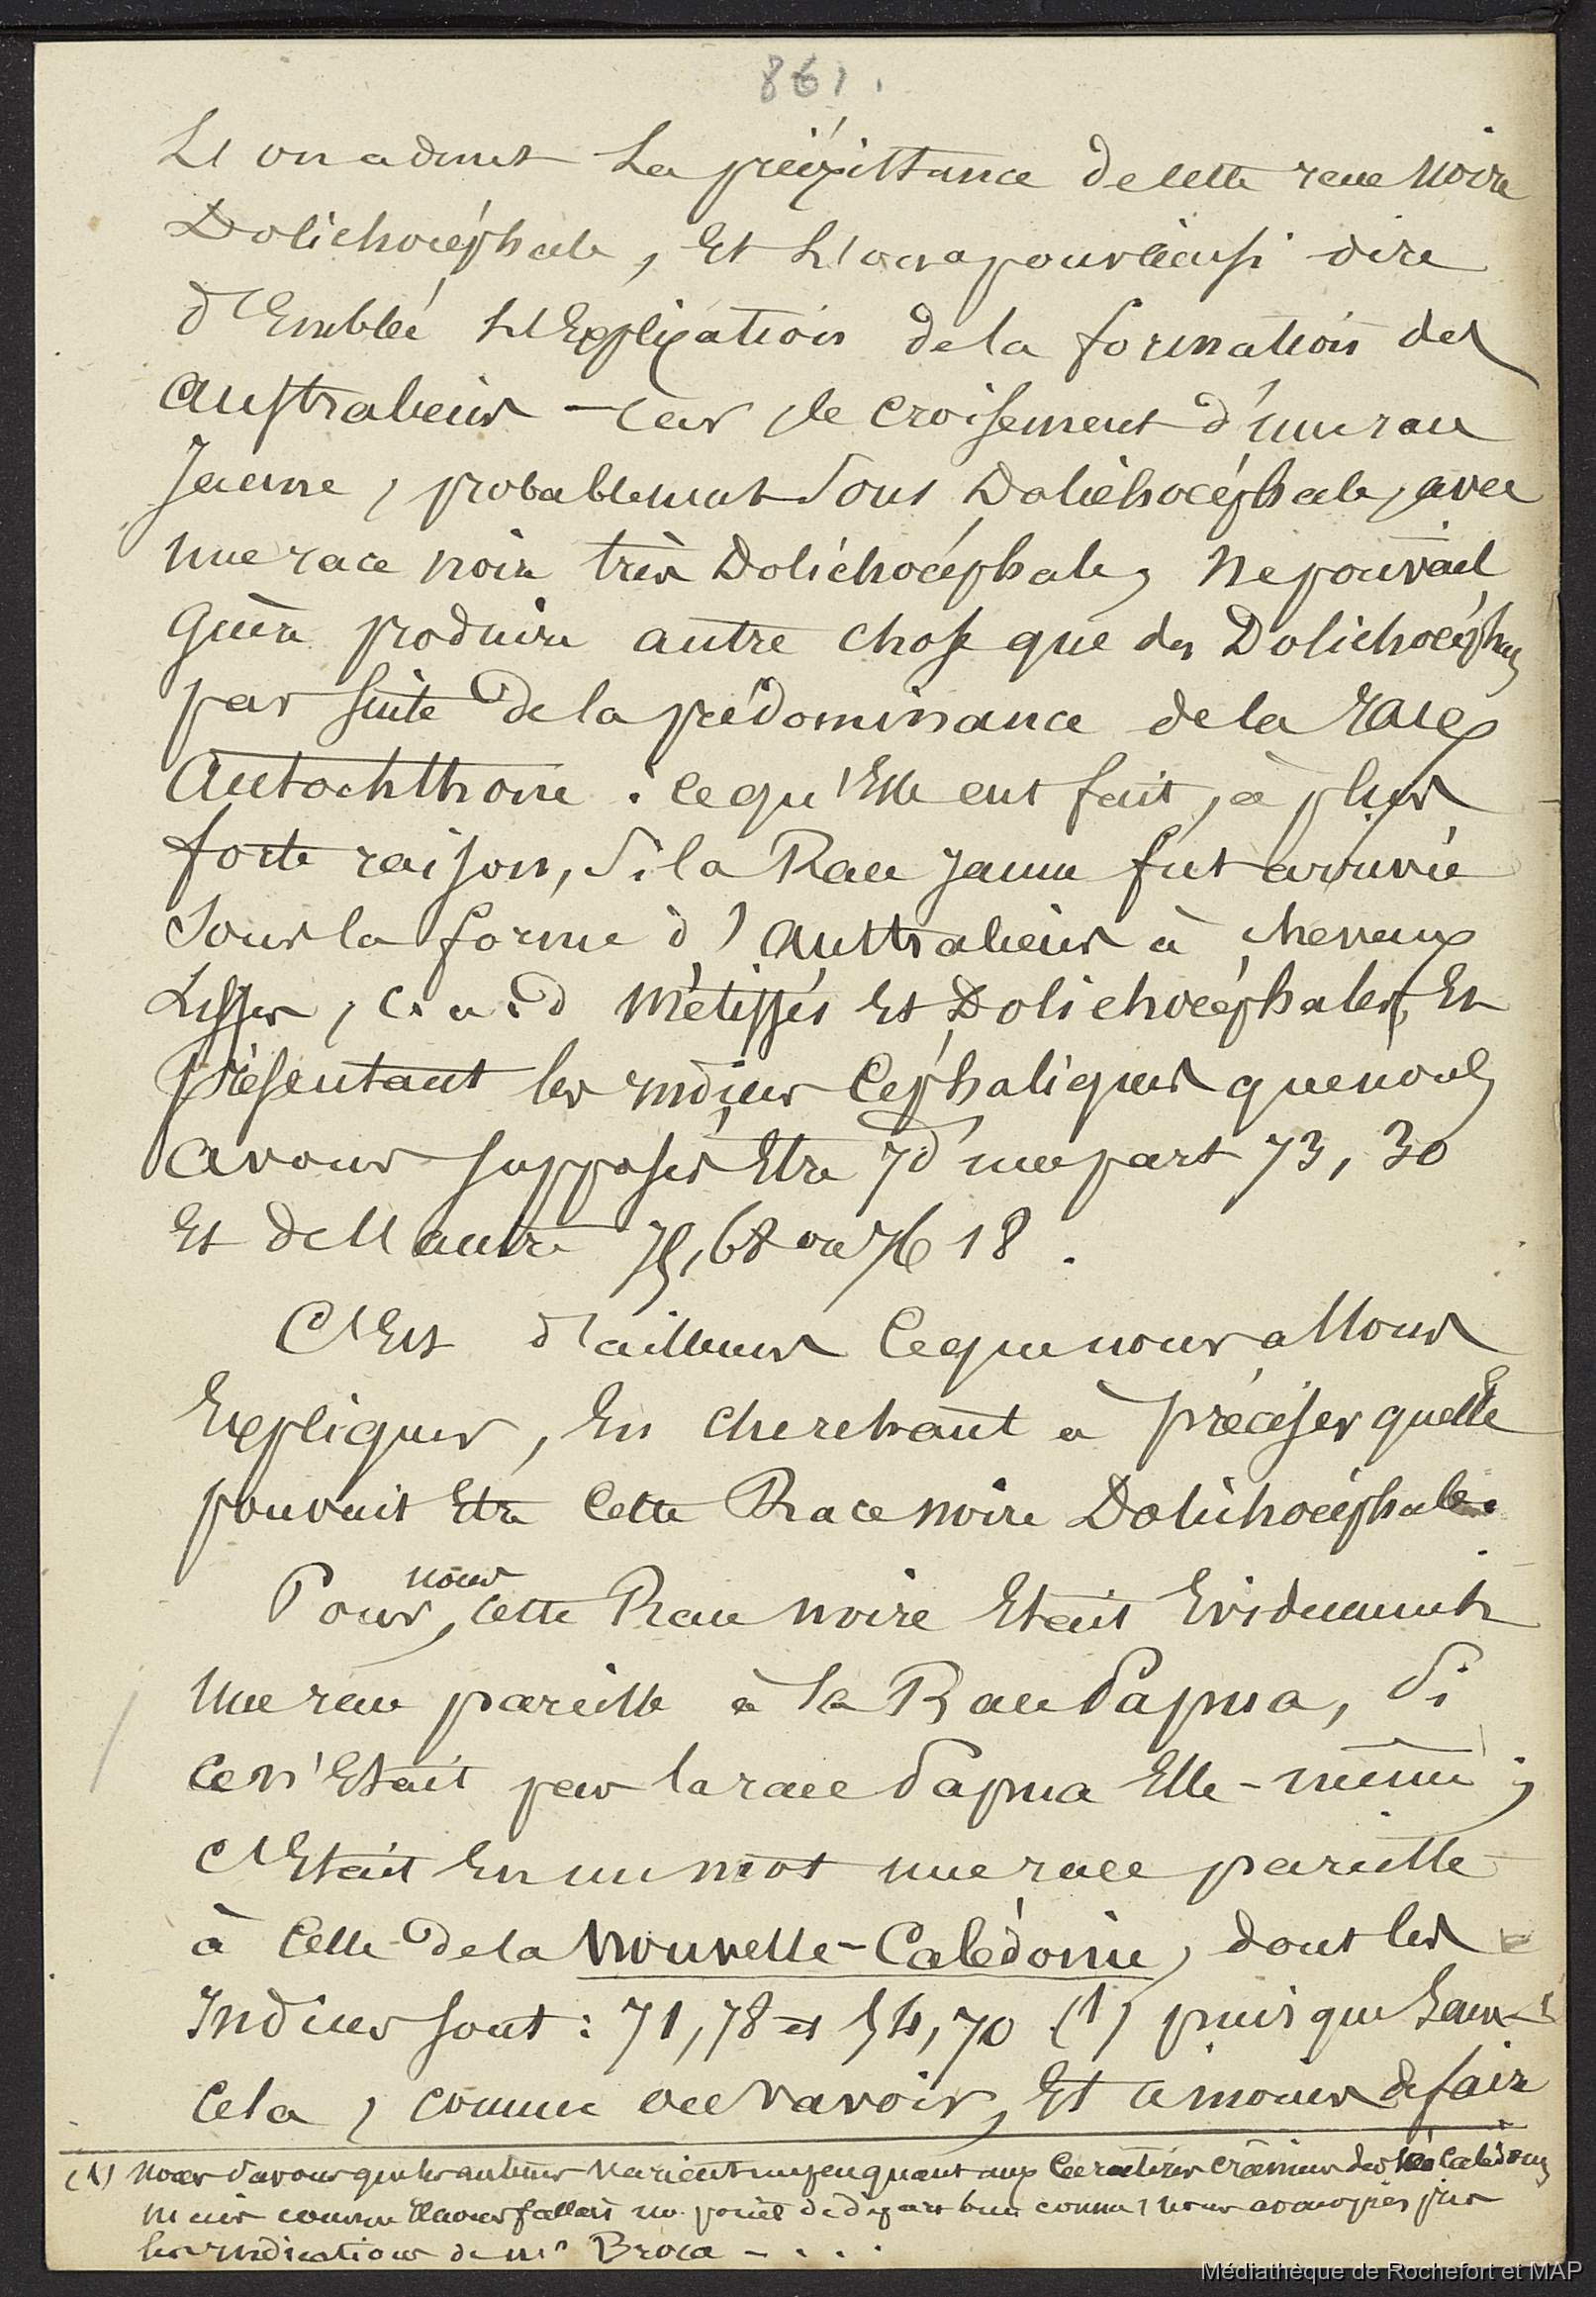 861.
L'on admet la préexistance de cette race noire
Dolichocéphale, Et L'on a pour ainsi dire
d'Emblée L'Explication de la formation des
Australiens - car le croisement d'une race
Jaune, probablement sous Dolichocéphale, avec
une race noire très Dolichocéphale, ne pouvait
Guère produire autre chose que des Dolichocéphales
par suite de la prédominance de la race
Autochthone : ce qu'Elle eut fait, à plus
forte raison, si la Race jaune fut arrivée
sous la forme d'Australiens à cheveux
Lisses, c. a. d Métissés Et Dolichocéphales, Et
présentant les indices Céphaliques que nous
avons supposés Etre d'une part 73,30
Et de l'autre 75,68 ou 76 18.
C'Est d'ailleurs Ce que nous allons
Expliquer, En cherchant à préciser quelle
pouvait Etre Cette Race noire Dolichocéphale.
Pour nous, cette Race noire Etait Evidemment
Une race pareille à la Race Papua, si
Ce n'Etait pas la race Papua Elle-même ;
C'Etait En un mot une race pareille
à Celle de la Nouvelle-Calédonie, dont les
Indices sont : 71,78 et 54,70 (1) puisque sans
Cela, comme on va voir, Et a moins de faire
(1) Nous savons que les auteurs varient un peu quant aux Caractères crâniens des Néo Calédoniens
mais comme il nous fallait un point de départ bien connu, nous avons pris
les indications de Mr Broca - . . . .
Médiathèque de Rochefort et MAP